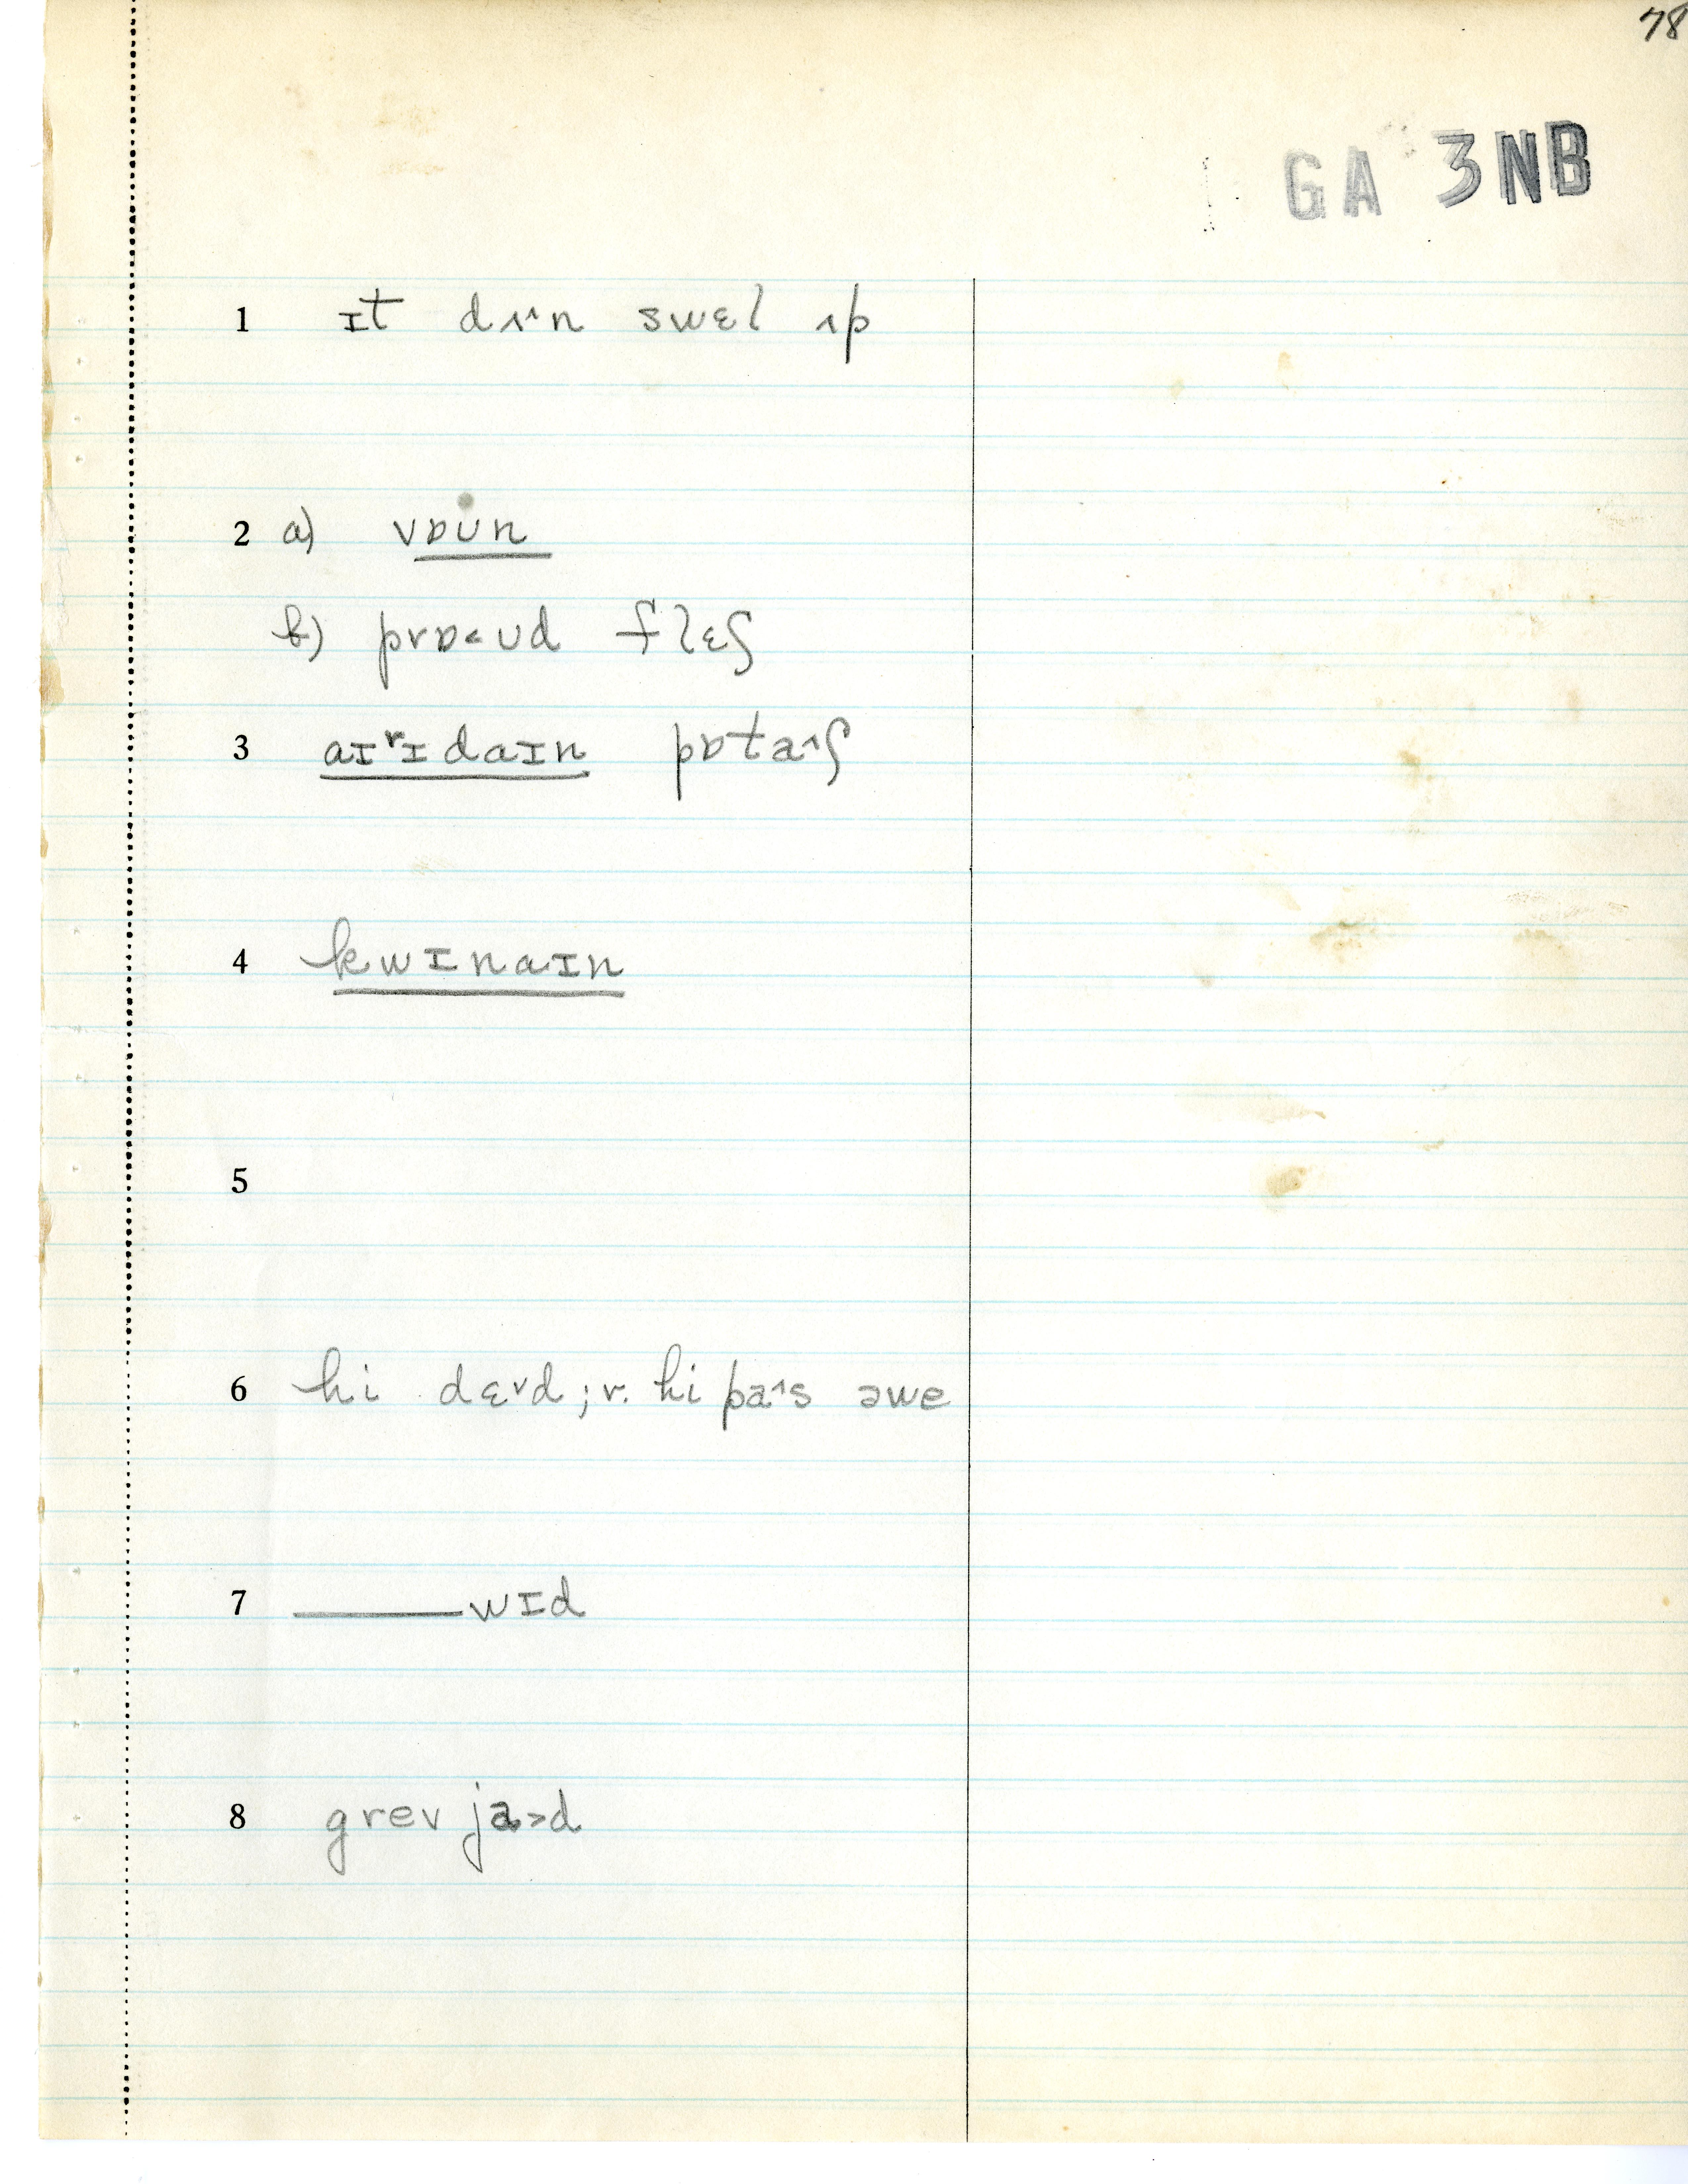 78
GA 3NB
1 ɪt dʌ^n swɛl ʌp
2 a) vɒun
b) prɒ<ud flɛʃ
3 aɪʳɪdaɪn pɒtaˆʃ
4 kwɪnaɪn
5
6 hi dɛ˅d; r. hi paˆs əwe
7 ______wɪd
8 grev ja>d